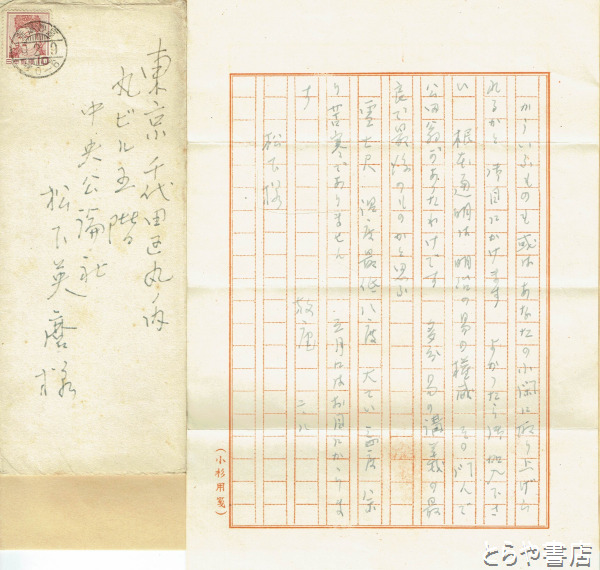 東京 千代田区丸ノ内
丸ビル五階
中央公論社
松下英麿様
かういふものも或はあなたの小閑に取り上げら
れるかと 御目にかけます よかつたら御覧下さ
い 根本通明は明治の易の権威
公田翁があつたわけです 多分易の講義の最
良で最後のものかと思ふ
雪七尺 温度最低八度 大てい三四度 余
り苦寒でありません 三月にはお目にかゝりま
す
松下様
放庵
(小杉用箋)
とらや書店